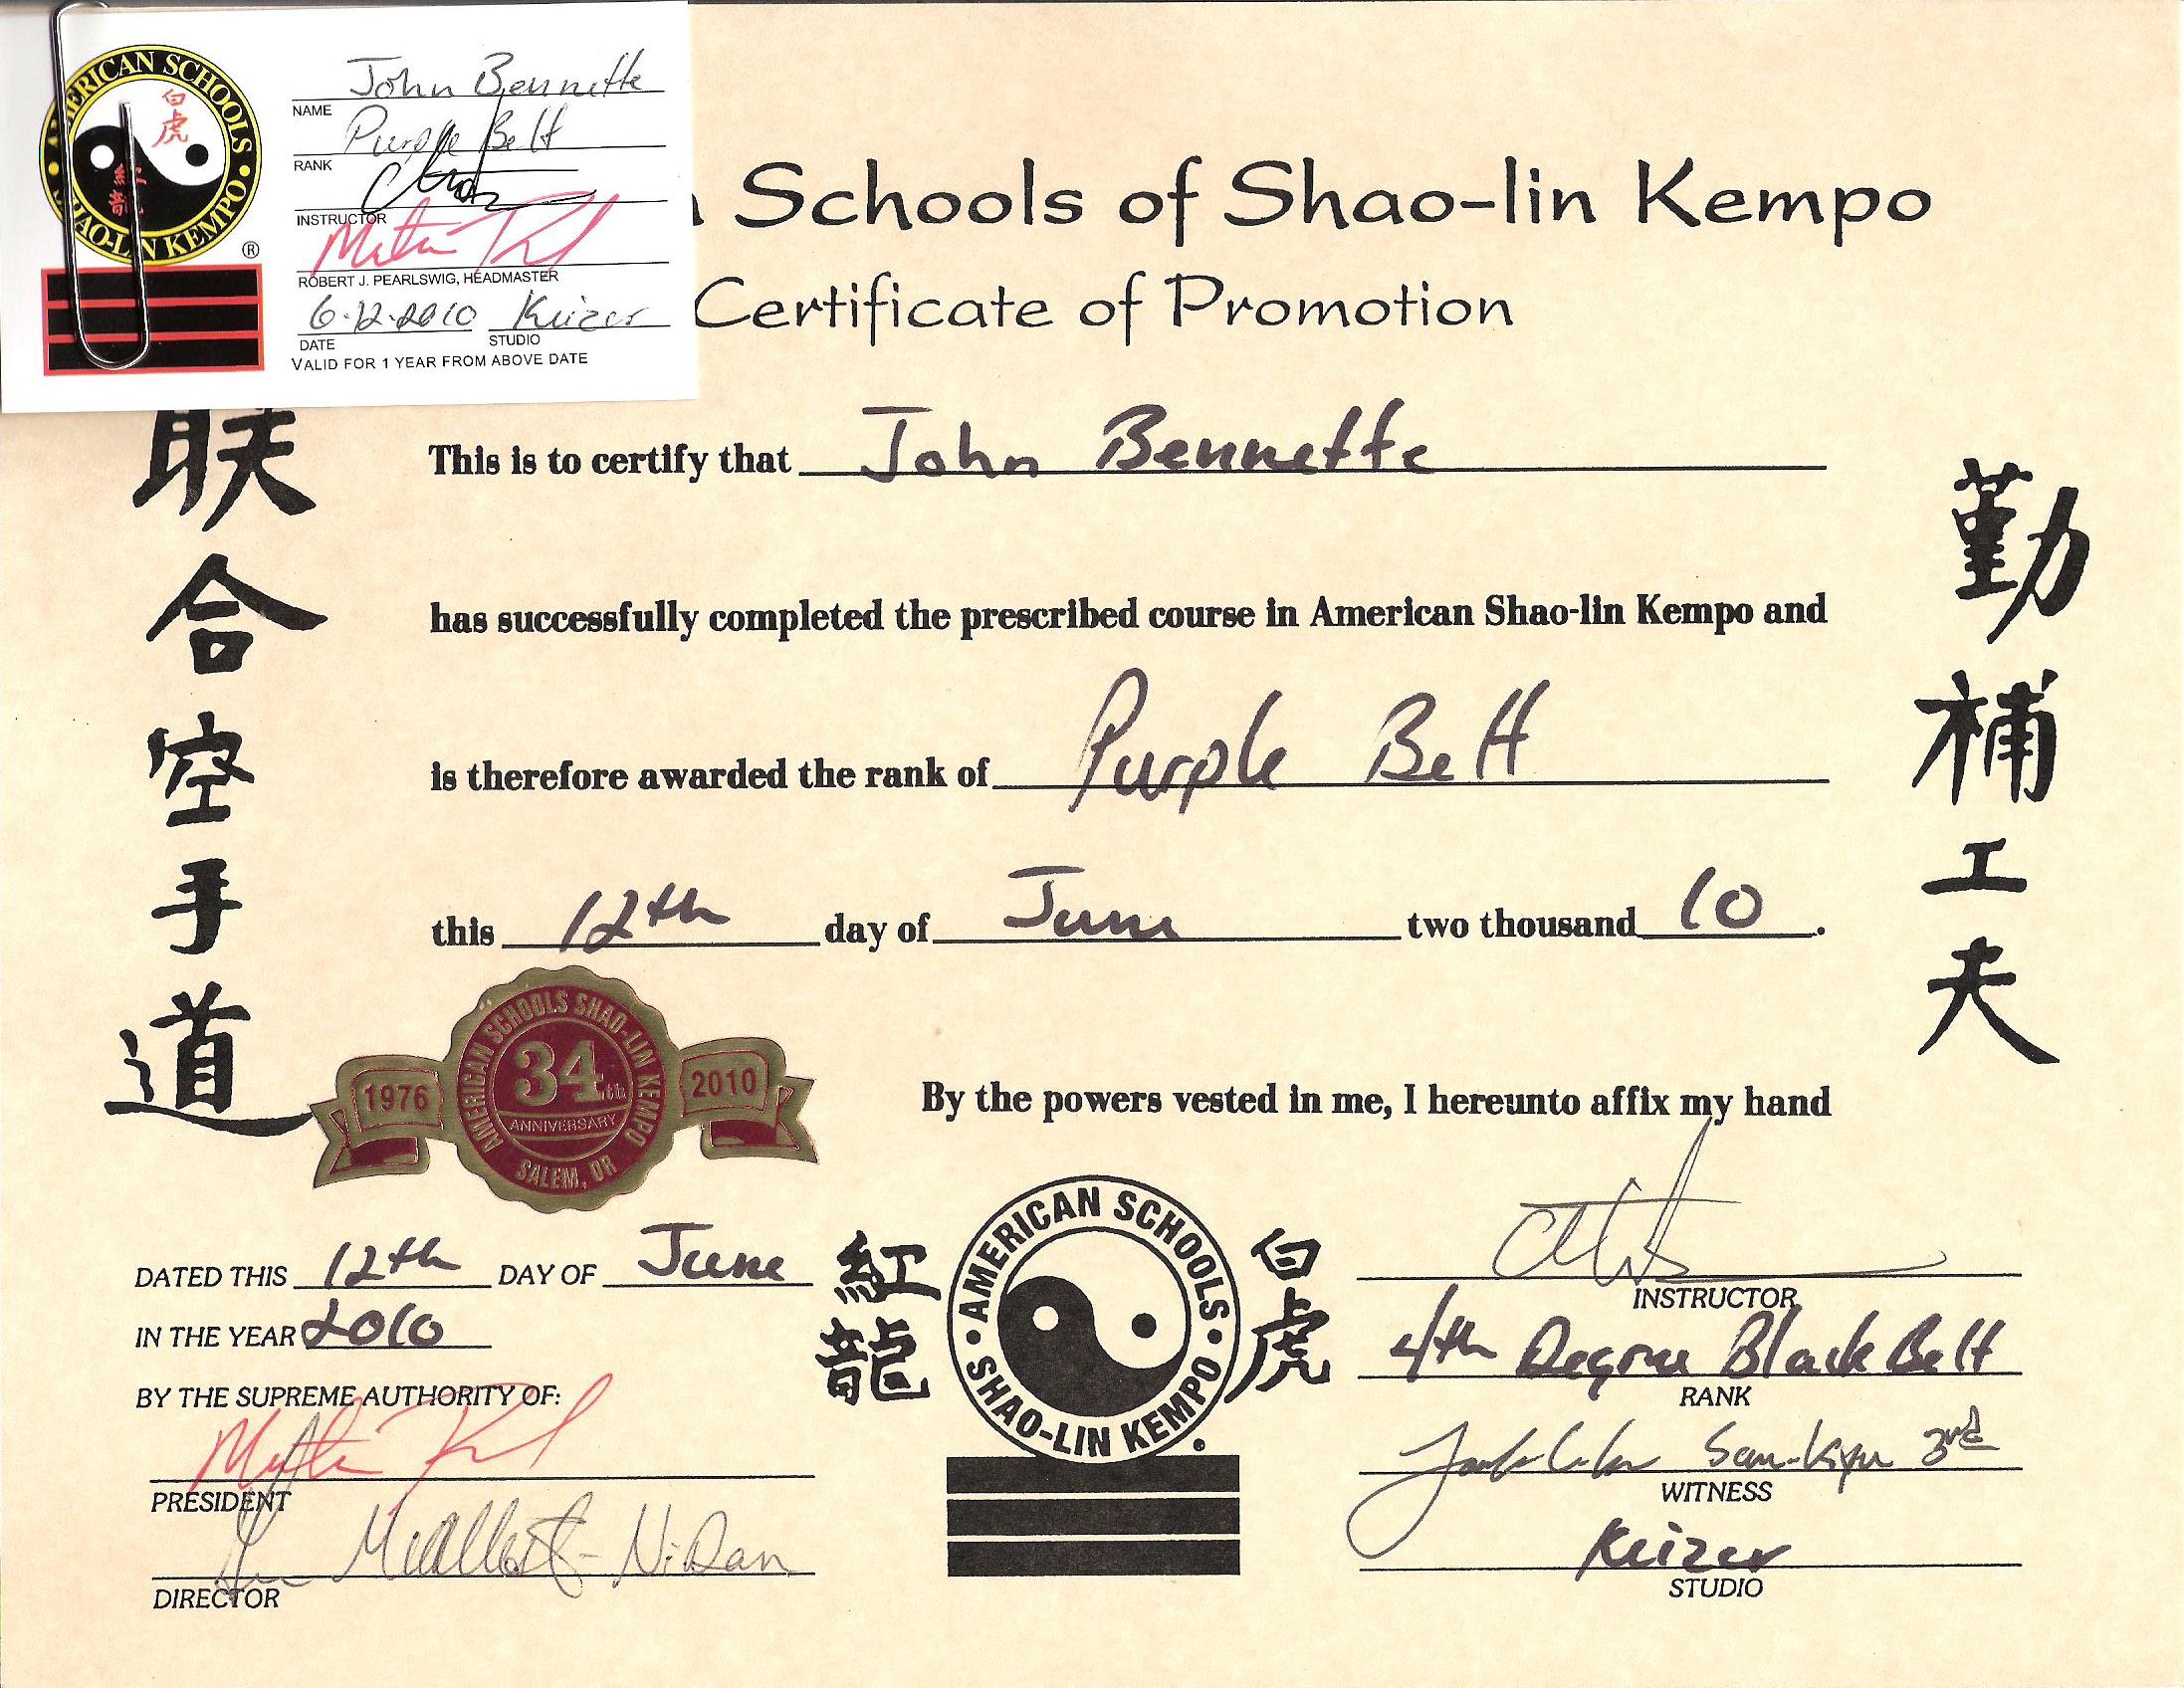 AMERICAN SCHOOLS
SHAO-LIN KEMPO
白虎
®
John Bennette
NAME
Purple Belt
RANK
INSTRUCTOR
ROBERT J. PEARLSWIG, HEADMASTER
6·12·2010 Keizer
DATE STUDIO
VALID FOR 1 YEAR FROM ABOVE DATE
Schools of Shao-lin Kempo
Certificate of Promotion
This is to certify that John Bennette
has successfully completed the prescribed course in American Shao-lin Kempo and
is therefore awarded the rank of Purple Belt
this 12th day of June two thousand 10.
合空手道
勤補工夫
AMERICAN SCHOOLS SHAO-LIN KEMPO
1976 34th 2010
ANNIVERSARY
SALEM, OR
By the powers vested in me, I hereunto affix my hand
DATED THIS 12th DAY OF June
IN THE YEAR 2010
BY THE SUPREME AUTHORITY OF:
PRESIDENT
NiDan
DIRECTOR
紅龍
AMERICAN SCHOOLS
SHAO-LIN KEMPO
白虎
INSTRUCTOR
4th Degree Black Belt
RANK
San-Kyu 3rd
WITNESS
Keizer
STUDIO